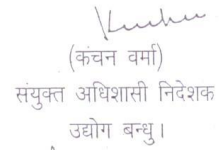 (कंचन वर्मा)
संयुक्त अधिशासी निदेशक
उद्योग बन्धु।